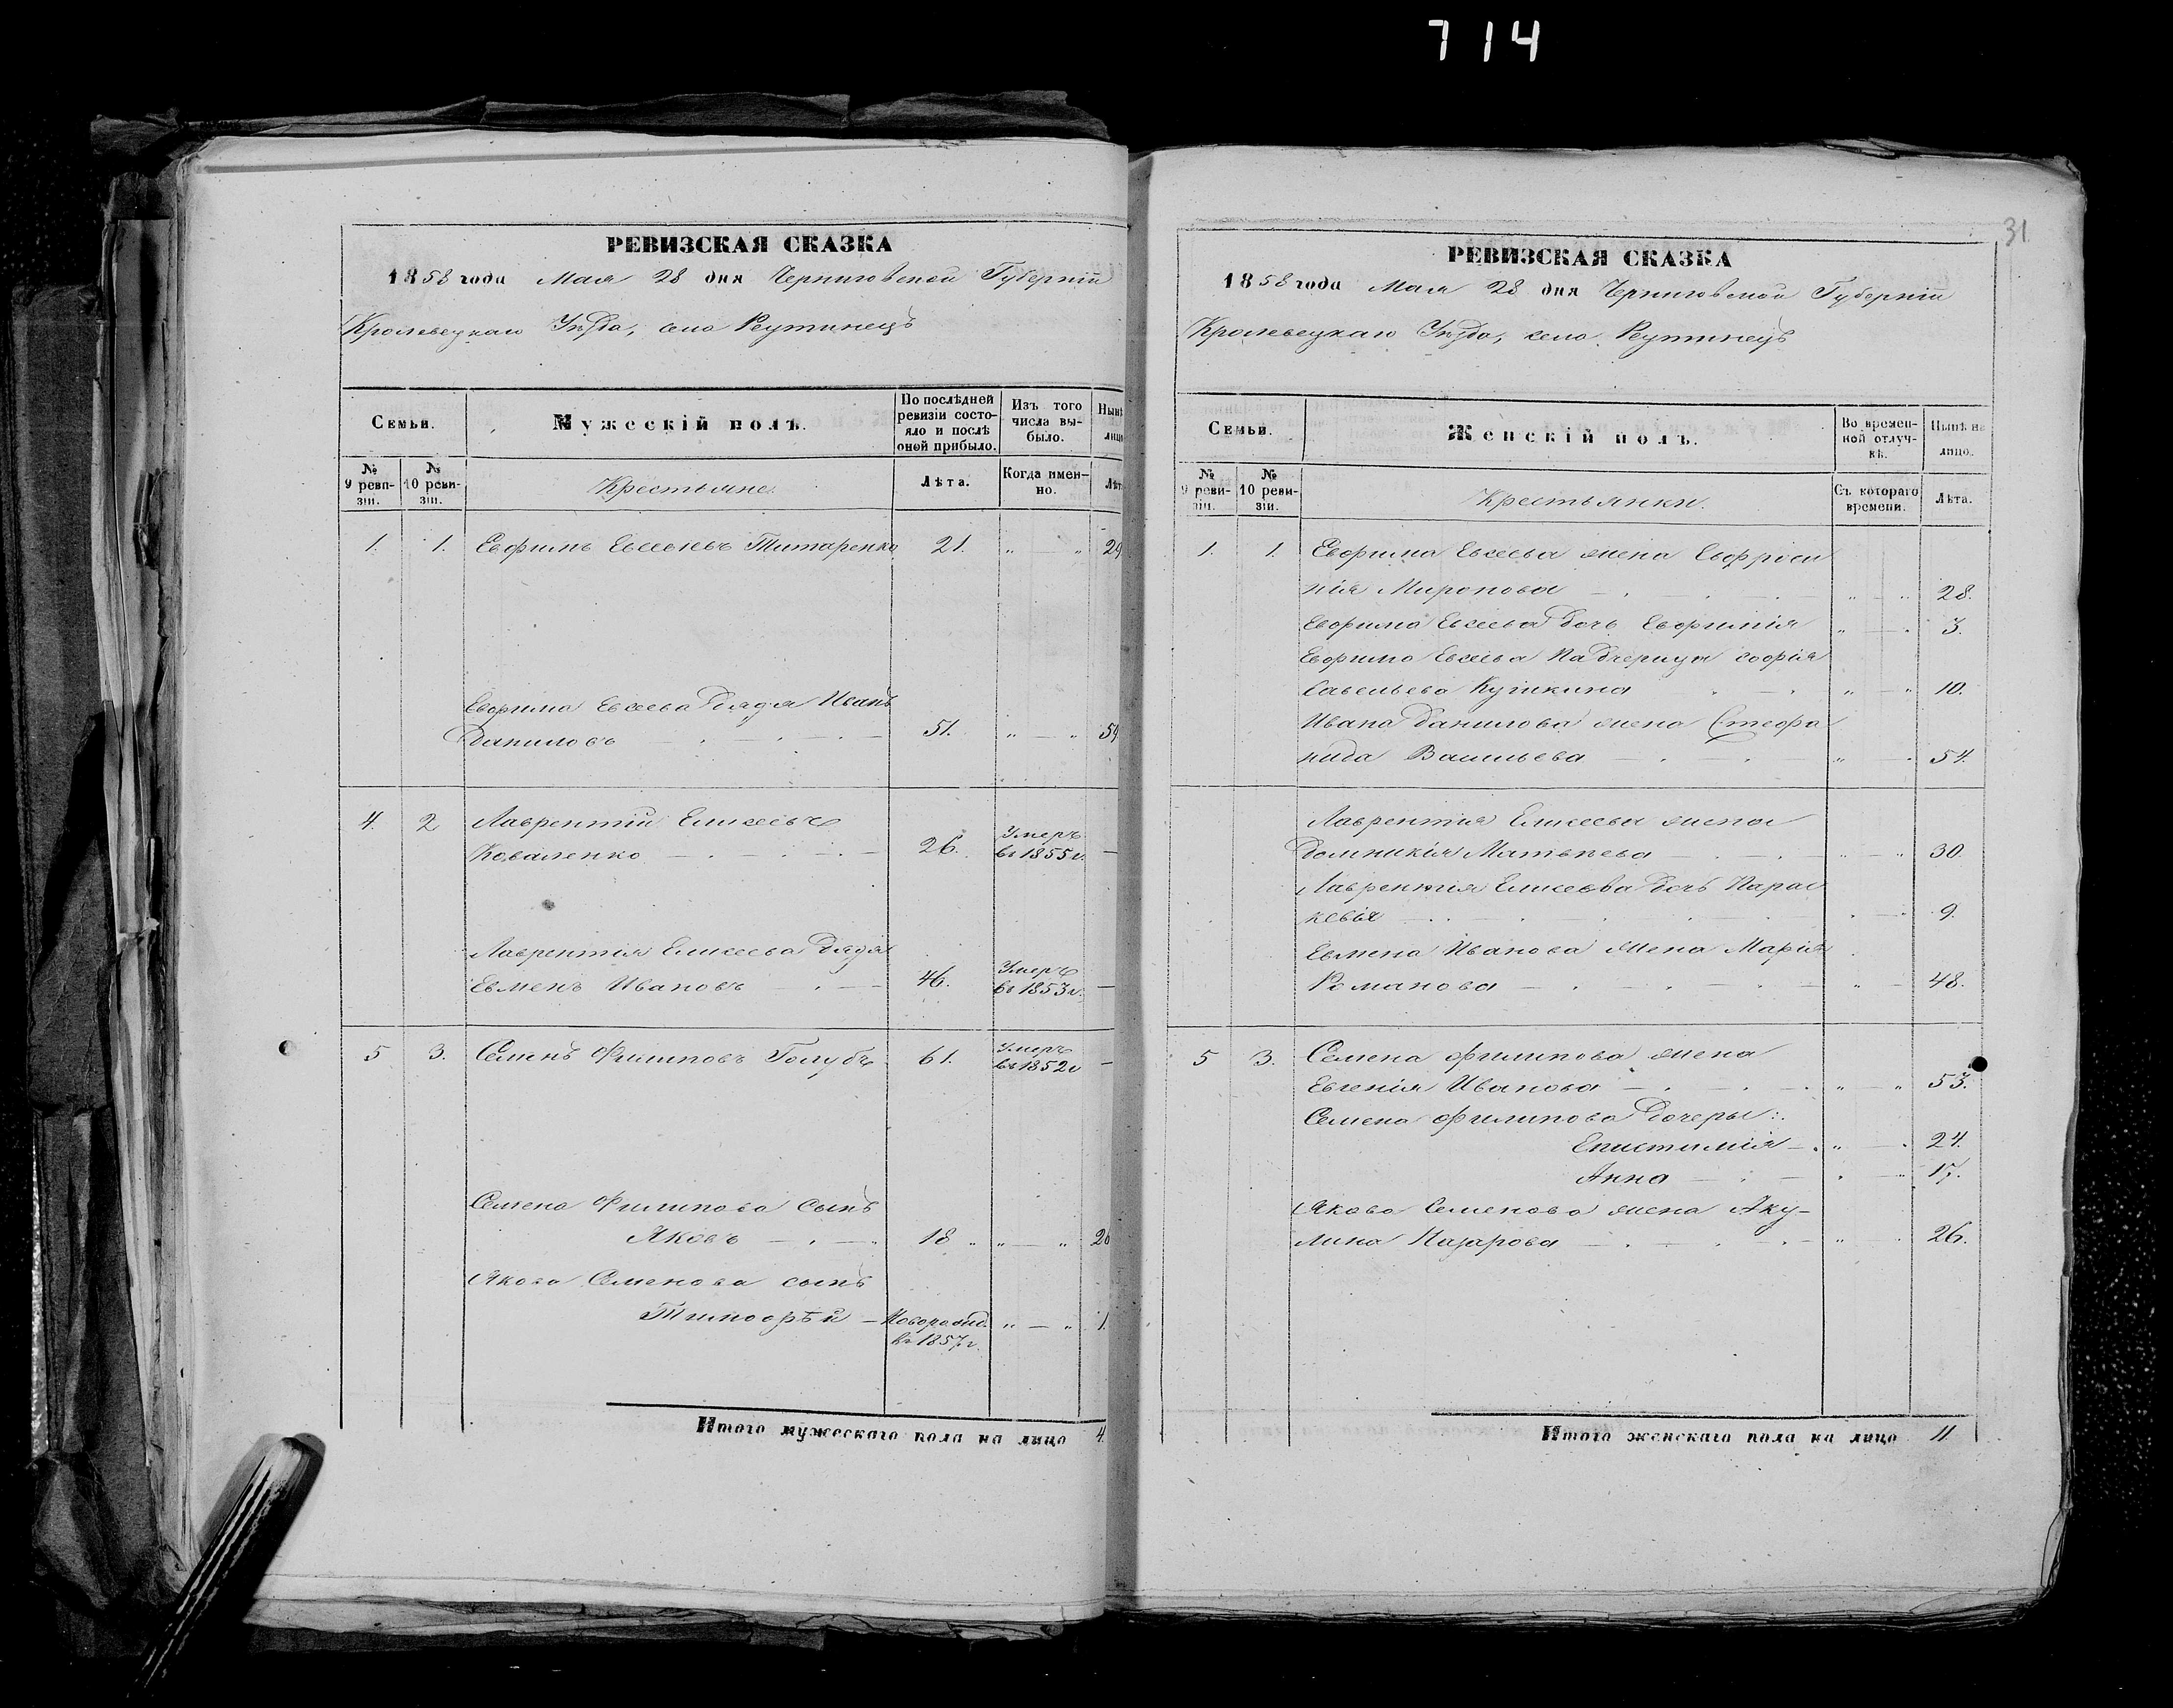 714
РЕВИЗСКАЯ СКАЗКА
1858 года Мая 28 дня Черниговской Губерніи
Кролевецкаго Уѣзда, села Реутинецъ
Семьи.
Мужескій полъ.
По послѣдней ревизіи состояло и послѣ оной прибыло.
Изъ того числа выбыло.
Нынѣ
лицо
№ 9 ревизіи.
№ 10 ревизіи.
Крестьяне
Лѣта.
Когда именно.
Лѣт
1. 1. Евфимъ Евсеевъ Титаренко 21. „ — „ 29
Евфима Евсеева дядя Иванъ
Даниловъ 51. „ — „ 59
4. 2 Лаврентій Елисеевъ
Коваленко 26. Умеръ въ 1855 г. —
Лаврентія Елисеева дядя
Евменъ Ивановъ 46. Умеръ въ 1853 г. —
5 3. Семенъ Филиповъ Голубъ 61. Умеръ въ 1852 г —
Семена Филипова сынъ
Яковъ 18 „ — „ 26
Якова Семенова сынъ
Тимофѣй — Новорожд. въ 1857 г. „ — „ 1.
Итого мужескаго пола на лицо 4.
31
РЕВИЗСКАЯ СКАЗКА
1858 года Мая 28 дня Черниговской Губерніи
Кролевецкаго Уѣзда, села Реутинецъ
Семьи.
Женскій полъ.
Во временной отлучкѣ.
Нынѣ на лицо.
№ 9 ревизіи.
№ 10 ревизіи.
Крестьянки.
Съ котораго времени.
Лѣта.
1. 1. Евфима Евсеева жена Евфроси
нія Миронова „ — „ 28.
Евфима Евсеева дочь Евфимія „ — „ 3.
Евфима Евсеева Падчерица Софія
Савельева „ — „ 10.
Ивана Данилова жена Стефа
нида Васильева „ — „ 54.
Лаврентія Елисеева жена
Домникія Матвѣева „ — „ 30.
Лаврентія Елисеева дочь Парас
кевія „ — „ 9.
Евмена Иванова жена Марія
Романова „ — „ 48.
5 3. Семена Филипова жена
Евгенія Иванова „ — „ 53.
Семена Филипова дочеры:
Епистимія „ — „ 24.
Анна „ — „ 17.
Якова Семенова жена Аку-
лина Назарова „ — „ 26.
Итого женскаго пола на лицо 11